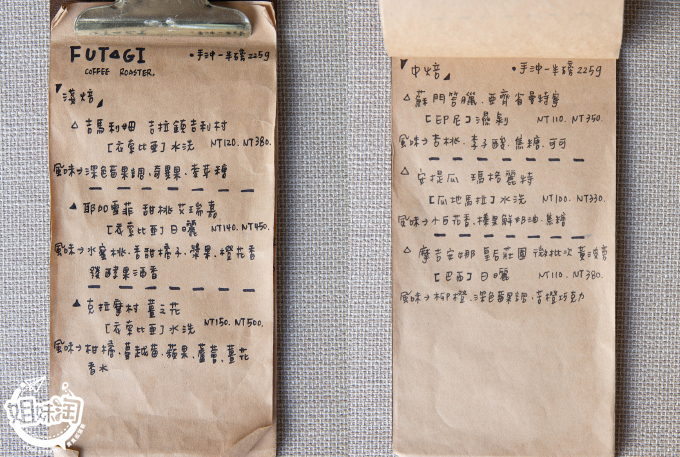 FUTAGI
COFFEE ROASTER.
•手沖一半磅225g
淺焙
△ 吉馬利姆 吉拉鎮吉利村
[衣索比亞] 水洗 NT120. NT380.
風味→深色莓果調、莓果、麥芽糖
△ 耶加雪菲 甜桃艾瑞嘉
[衣索比亞] 日曬 NT140. NT450.
風味→水蜜桃、香甜橘子、漿果、橙花香
發酵果酒香
▲ 克拉摩村 薑花
[衣索比亞] 水洗 NT150. NT500.
風味→柑橘、蔓越莓、蘋果、蘆薈、薑花
香水
中焙
•手沖一半磅225g
△ 蘇門答臘.亞齊省曼特寧
[印尼] 濕剝 NT110. NT350.
風味→杏桃、李子酸、焦糖、可可
△ 安提瓜 瑪格麗特
[瓜地馬拉] 水洗 NT100. NT330.
風味→小白花香、榛果鮮奶油、焦糖
△ 摩吉安娜 皇后莊園 微批次 黃波旁
[巴西] 日曬 NT110. NT380.
風味→柳橙、深色莓果調、苦橙巧克力
姐妹淘